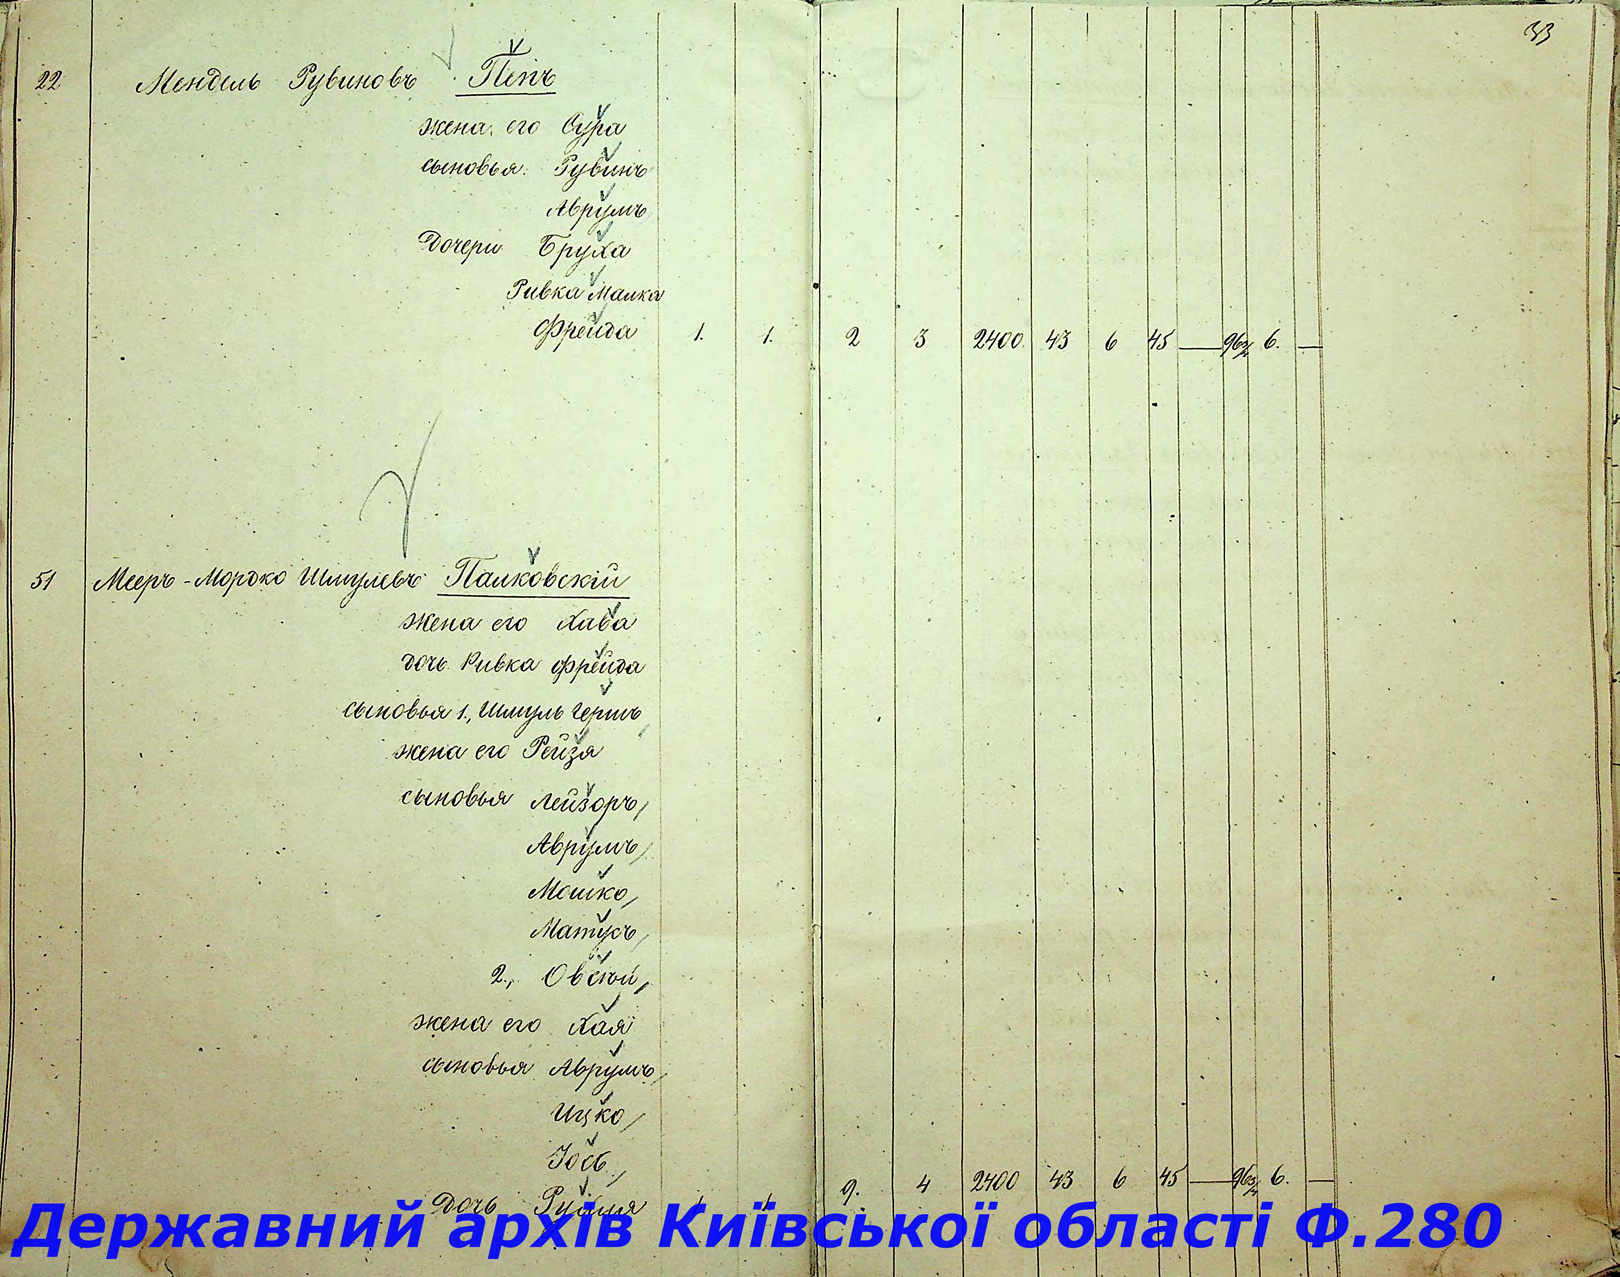 33
22 Мендель Рувиновъ Пепъ
жена его Сура
сыновья Рувинъ
Аврумъ
Дочери Бруха
Ривка Малка
Фрейда 1. 1. 2 3 2400 43 6 45 — 96¾ 6. —
51 Мееръ-Мордко Шмулевъ Палковскій
жена его Хава
дочь Ривка Фрейда
сыновья 1., Шмуль Гершъ
жена его Рейзя
сыновья Лейзоръ,
Аврумъ,
Мошко,
Матусъ,
2., Овсѣй,
жена его Хая
сыновья Аврумъ,
Ицко,
Іось,
Дочь 1 1 9. 4 2400 43 6 45 — 96¾ 6. —
Державний архів Київської області Ф.280